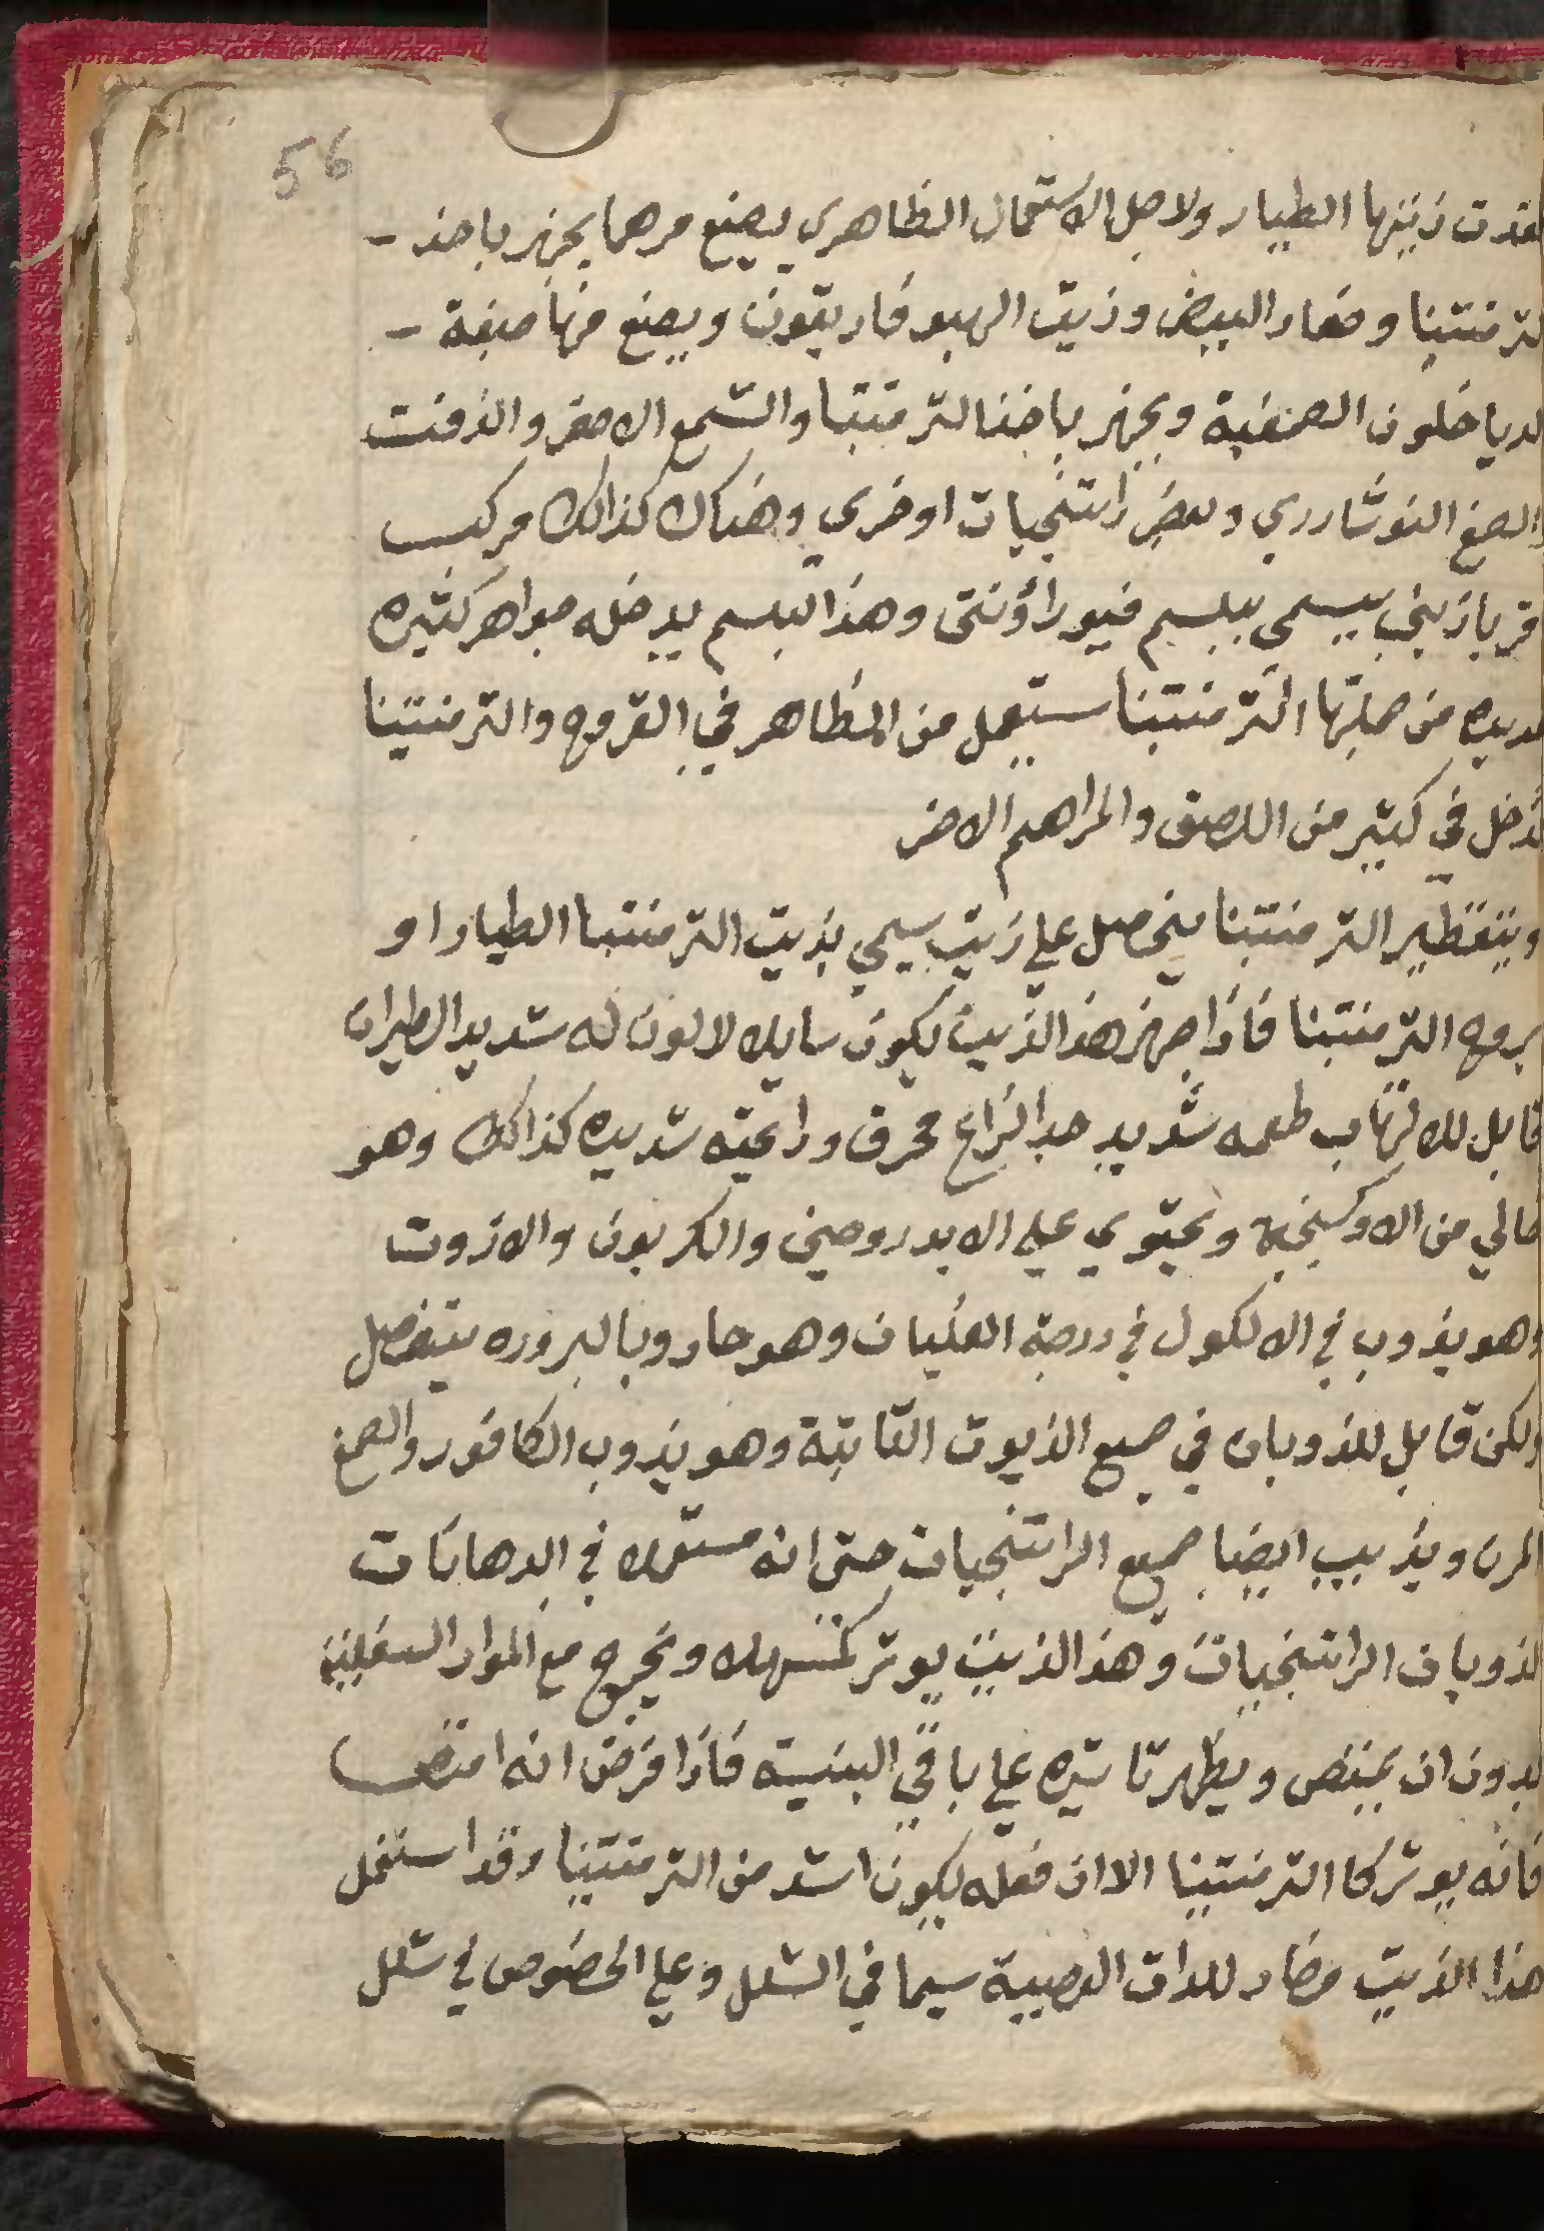 56
فقدت زيتها الطيار ولاجل الاستعمال الظاهري يصنع مرهما يجهز باخذ -
لترمنتينا وصفار البيض وزيت الهيوفاريقون ويصنع منها صبغة -
لدياخلون الصمغية ويجهز باخذ الترمنتينا والشمع الاصفر والزفت
والصمغ النوشادري وبعض راتنجيات اوخري وهناك كذالك مركب
اقرباذيني يسمي ببلسم فيوراونتى وهذا البلسم يدخله جواهر كثيره
عديده من جملتها الترمنتينا ستعمل من الظاهر في القروح والترمنتينا
تدخل في كثير من اللصق والمراهم الاخر
وبتقطير الترمنتينا ينحصل علي زيت يسمي بزيت الترمنتينا الطيار او
بروح الترمنتينا فاذا جهز هذ الزيت يكون سايلا لا لون له شديد الطيران
قابل للالتهاب طعمه شديد جدا لزاع محرق ورايحته شديده كذالك وهو
خالي من الاوكسيجين ويحتوي علي الايدروجين والكربون والازوت
وهو يذوب في الالكول في درجة الغليان وهو حار وبالبروده يتفصل
ولكن قابل للذوبان في جميع الزيوت الثابتة وهو يذوب الكافور والصمغ
المرن ويذيب ايضا جميع الراتنجيات حتى انه مستعملا في الدهانات
لذوبان الراتنجيات وهذ الزيت يوثر كمسهلا ويخرج مع المواد السفلية
بدون ان يمتص ويظهر تاثيره علي باقي البنية فاذا فرض انه امتص
فانه يوثر كا الترمنتينا الا ان فعله يكون اشد من الترمنتينا وقد استعمل
هذا الزيت مضاد للدات العصبية سيما في الشلل وعلي الخصوص في شلل